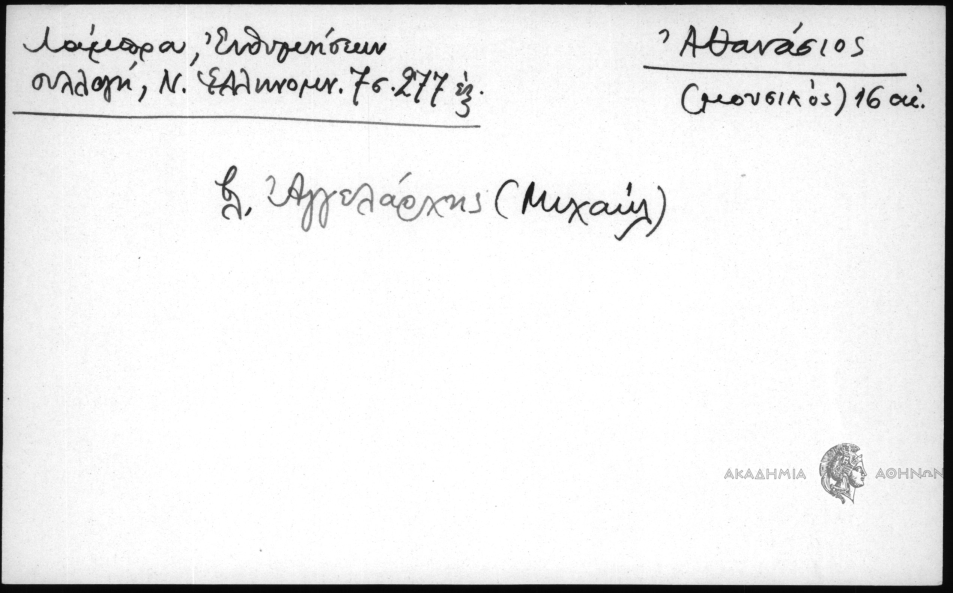 Λάμπρα, Ἐνθυμήσεων
συλλογή, Ν. Ἑλληνομν. 7 σ. 277 ἑξ.
Ἀθανάσιος
(μουσικός) 16 αἰ.
βλ. Ἀγγελάρχης (Μιχαήλ)
ΑΚΑΔΗΜΙΑ ΑΘΗΝΩΝ